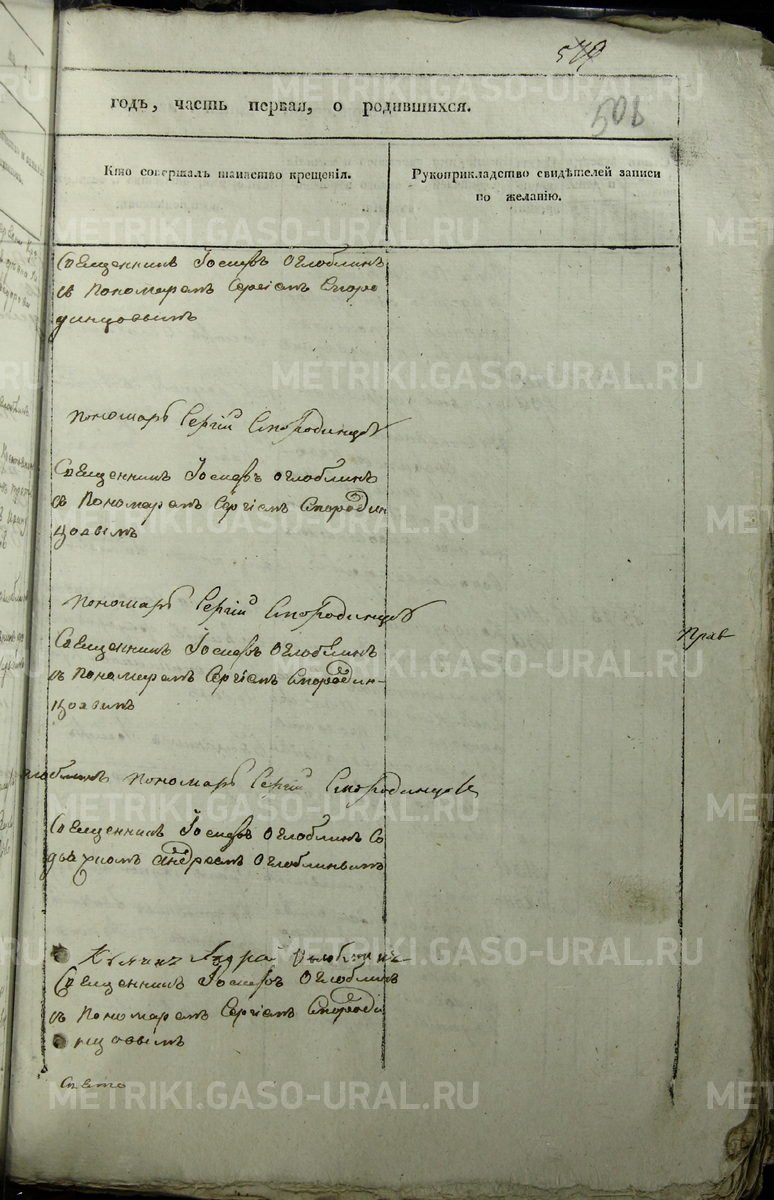 501
годъ, часть первая, о родившихся.
Кто совершалъ таинство крещенія.
Рукоприкладство свидѣтелей записи
по желанію.
Священникъ Іосифъ Оглоблинъ
съ Пономаремъ Сергіемъ Смороде
динцовымъ
пономарь Сергій Смородинцовъ
Священникъ Іосифъ Оглоблинъ
съ Пономаремъ Сергіемъ Смородин
цовымъ
пономарь Сергій Смородинцовъ
Священникъ Іосифъ Оглоблинъ
съ Пономаремъ Сергіемъ Смородин-
цовымъ
Прав
Оглоблинъ пономарь Сергій Смородинцовъ
Священникъ Іосифъ Оглоблинъ со
дьячкомъ Андреемъ Оглоблинымъ
Оглоблинъ
Священникъ Іосифъ Оглоблинъ
съ Пономаремъ Сергіемъ Смороди
нцовымъ
METRIKI.GASO-URAL.RU